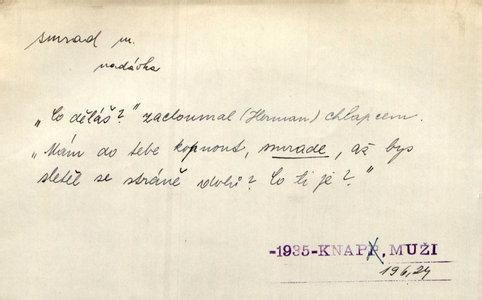 smrad m.
nadávka
„Co děláš?" zacloumal (Herman) chlapcem.
„Mám do tebe kopnout, smrade, až bys
sletěl se stráně dolů? Co ti je?"
-1935-KNAPP, MUŽI
196,24